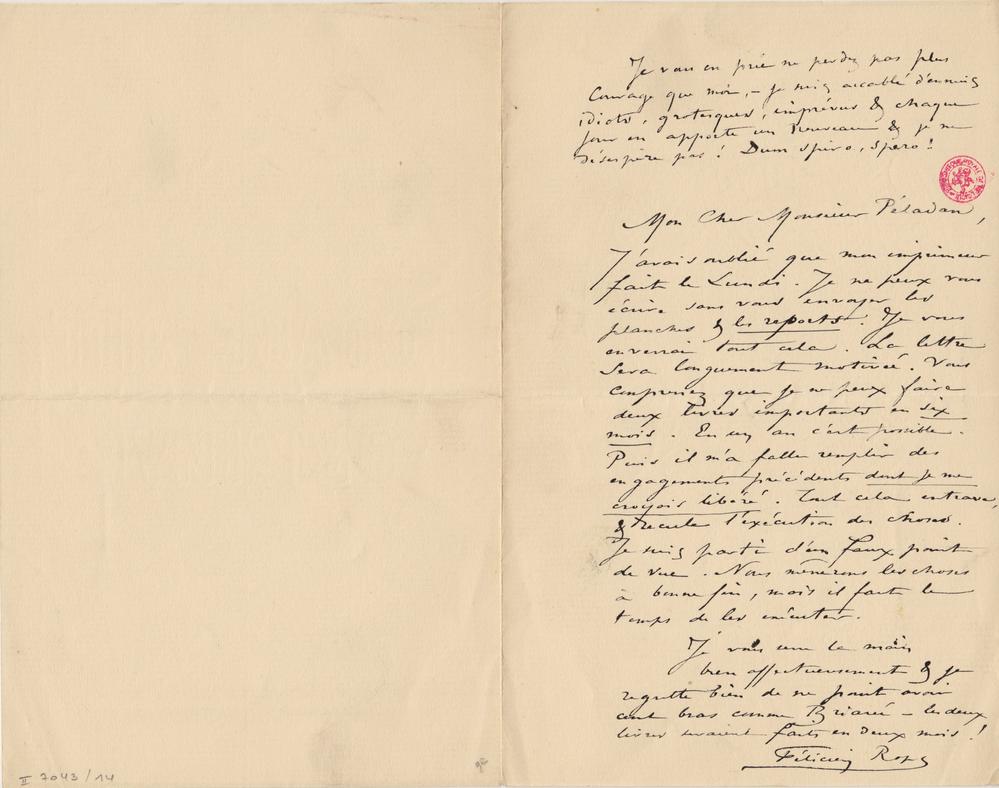 Je vous en prie ne perdez pas plus
Courage que moi, – je suis accablé d'ennuis
idiots, grotesques, imprévus & chaque
jour en apporte un Nouveau & je ne
désespère pas! Dum spiro, spero!
Mon Cher Monsieur Péladan,
J'avais oublié que mon imprimeur
fait le Lundi. Je ne peux vous
écrire sans vous envoyer les
planches & les reports. Je vous
enverrai tout cela. La lettre
sera longuement motivée. Vous
comprenez que je ne peux faire
deux livres importants en six
mois. En un an c'est possible.
Puis il m'a fallu remplir des
engagements précédents dont je me
croyais libéré. Tout cela entrave,
& recule l'exécution des choses.
Je suis parti d'un faux point
de vue. Nous mènerons les choses
à bonne fin, mais il faut le
temps de les exécuter.
Je vous serre la main
bien affectueusement & je
regrette bien de ne point avoir
cent bras comme Briarée – les deux
livres seraient faits en deux mois!
Félicien Rops
II 7043/14